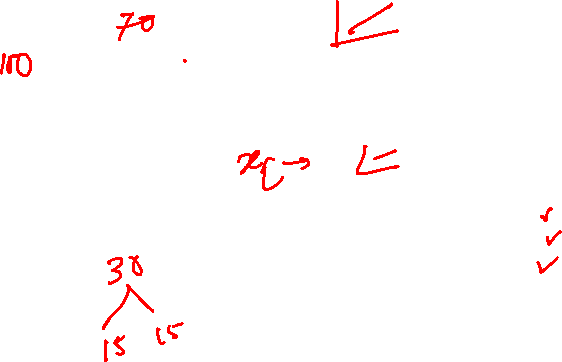 70
100
x
30
15 15